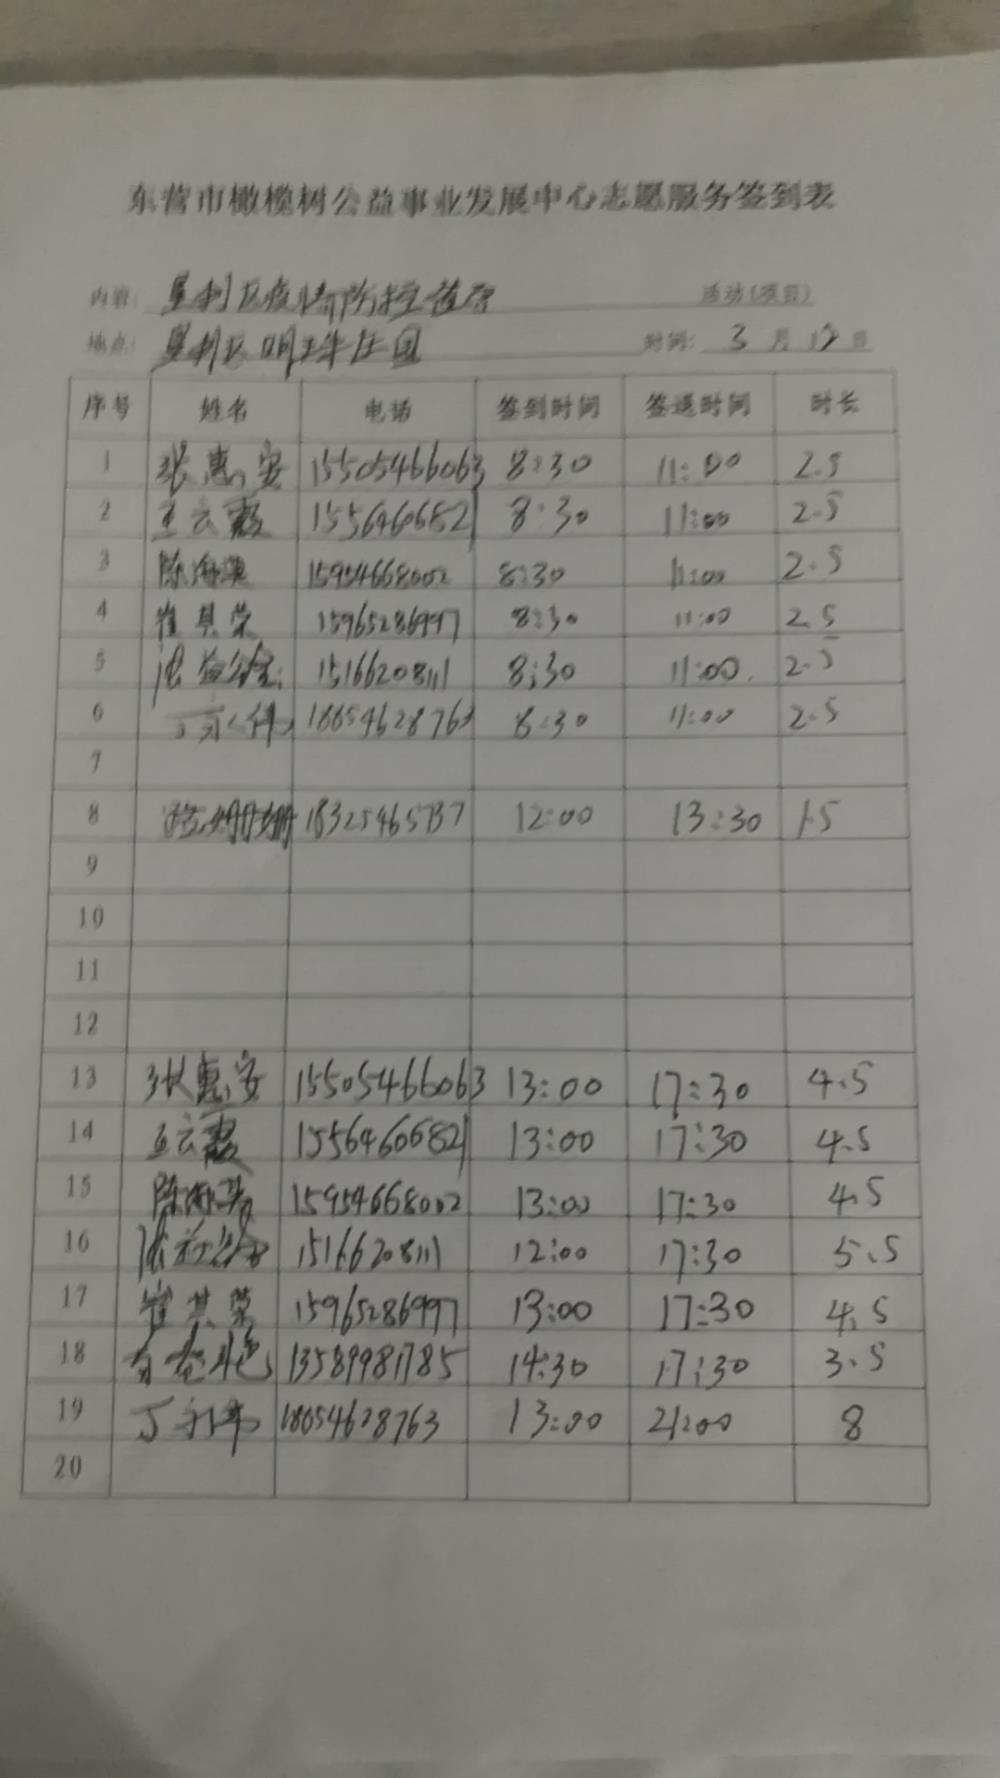 东营市橄榄树公益事业发展中心志愿服务签到表
内容: 垦利区疫情防控值守 活动(项目)
地点: 垦利区明珠庄园 时间: 3 月 12 日
序号 姓名 电话 签到时间 签退时间 时长
1 张惠安 15505466063 8:30 11:00 2.5
2 王云霞 15564606821 8:30 11:00 2.5
3 陈海英 15954668002 8:30 11:00 2.5
4 崔其荣 15965286997 8:30 11:00 2.5
5 15166208111 8:30 11:00 2.5
6 18654628763 8:30 11:00 2.5
7
8 姗姗 12:00 13:30 1.5
9
10
11
12
13 张惠安 15505466063 13:00 17:30 4.5
14 王云霞 15564606821 13:00 17:30 4.5
15 陈海英 15954668002 13:00 17:30 4.5
16 15166208111 12:00 17:30 5.5
17 崔其荣 15965286997 13:00 17:30 4.5
18 13589981785 14:30 17:30 3.5
19 18654628763 13:00 21:00 8
20